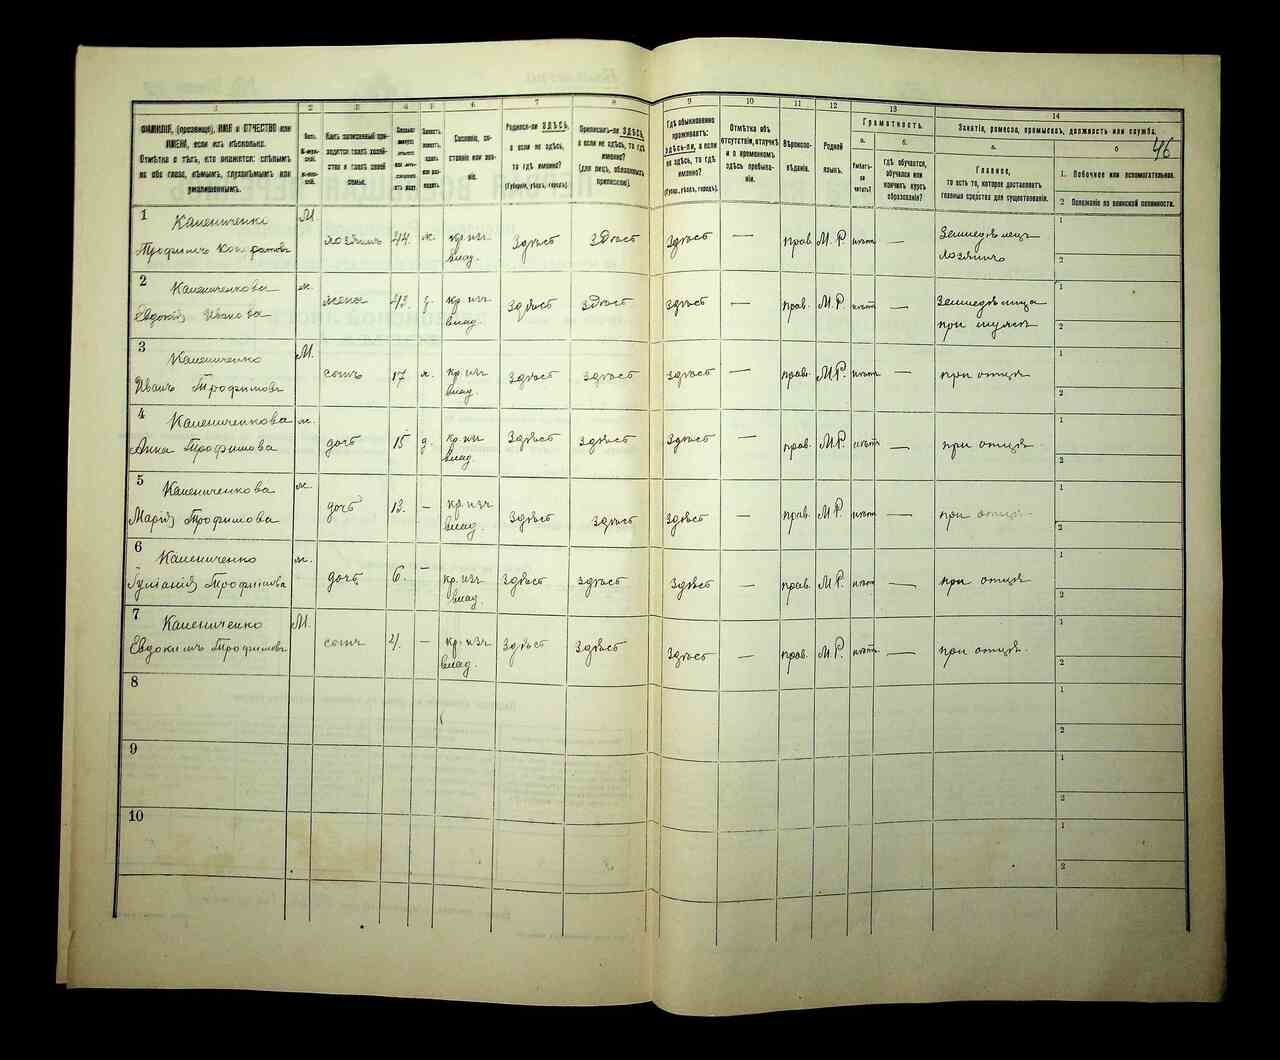 1 2 3 4 5 6 7 8 9 10 11 12 13 14
ФАМИЛІЯ, (прозвище), ИМЯ и ОТЧЕСТВО или ИМЕНА, если ихъ нѣсколько.
Отмѣтка о тѣхъ, кто окажется: слѣпымъ на оба глаза, нѣмымъ, глухонѣмымъ или умалишеннымъ.
Полъ.
Сословіе, состояніе или званіе.
Родился-ли ЗДѢСЬ,
а если не здѣсь,
то гдѣ именно?
(Губернія, уѣздъ, городъ).
Приписанъ-ли ЗДѢСЬ,
а если не здѣсь, то гдѣ
именно?
(для лицъ, обязанныхъ
припискою).
Гдѣ обыкновенно
проживаетъ:
здѣсь-ли, а если
не здѣсь, то гдѣ
именно?
(Губер., уѣздъ, городъ).
Отмѣтка объ
отсутствіи, отлучкѣ
и о временномъ
здѣсь пребываніи.
Вѣроисповѣданіе.
Родной
языкъ.
Грамотность.
а. б.
Умѣетъ-ли
читать?
Гдѣ обучается,
обучался или
кончилъ курсъ
образованія?
Занятіе, ремесло, промыселъ, должность или служба.
а. б
46
Главное,
то есть то, которое доставляетъ
главныя средства для существованія.
1. Побочное или вспомогательное.
2 Положеніе по воинской повинности.
1 Каменниченко М
Трофимъ хозяинъ 44. ж. кр. изъ влад. Здѣсь Здѣсь Здѣсь — прав. М. Р. нѣтъ — Земледѣлецъ хозяинъ 1 2
2 Каменниченкова ж.
Евдокія Иванова жена 43. з. кр. изъ влад. здѣсь здѣсь здѣсь — прав. М. Р. нѣтъ — Земледѣлица при мужѣ 1 2
3 Каменниченко М.
Иванъ Трофимовъ сынъ 17 х. кр. изъ влад. здѣсь здѣсь здѣсь — прав. М. Р. нѣтъ — при отцѣ 1 2
4 Каменниченкова ж.
Анна Трофимова дочь 15 д. кр. изъ влад. здѣсь здѣсь здѣсь — прав. М. Р. нѣтъ — при отцѣ 1 2
5 Каменниченкова ж.
Марія Трофимова дочь 13. — кр. изъ влад. здѣсь здѣсь здѣсь — прав. М. Р. нѣтъ — при отцѣ 1 2
6 Каменниченко ж.
Трофимова дочь 6. — кр. изъ влад. здѣсь здѣсь здѣсь — прав. М. Р. нѣтъ — при отцѣ 1 2
7 Каменниченко М.
Евдокимъ Трофимовъ сынъ — кр. изъ влад. здѣсь здѣсь здѣсь — прав. М. Р. нѣтъ — при отцѣ. 1 2
8 1 2
9 1 2
10 1 2